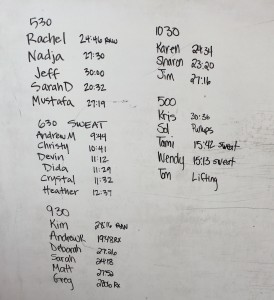 530
Rachel 24:46 RAW
Nadja 27:30
Jeff 30:00
Sarah D 20:32
Mustafa 27:19
630 SWEAT
Andrew M 9:44
Christy 10:41
Devin 11:12
Dida 11:29
Crystal 11:32
Heather 12:37
930
Kim 28:16
Andrew K 19:48 RX
Deborah 27:26
Sarah 24:18
Matt 27:52
Greg Rx
1030
Karen 29:34
Sharon 23:20
Jim 27:16
500
Kris 30:36
Sol
Tami 15:42 sweat
Wendy 15:13 sweat
Tom Lifting